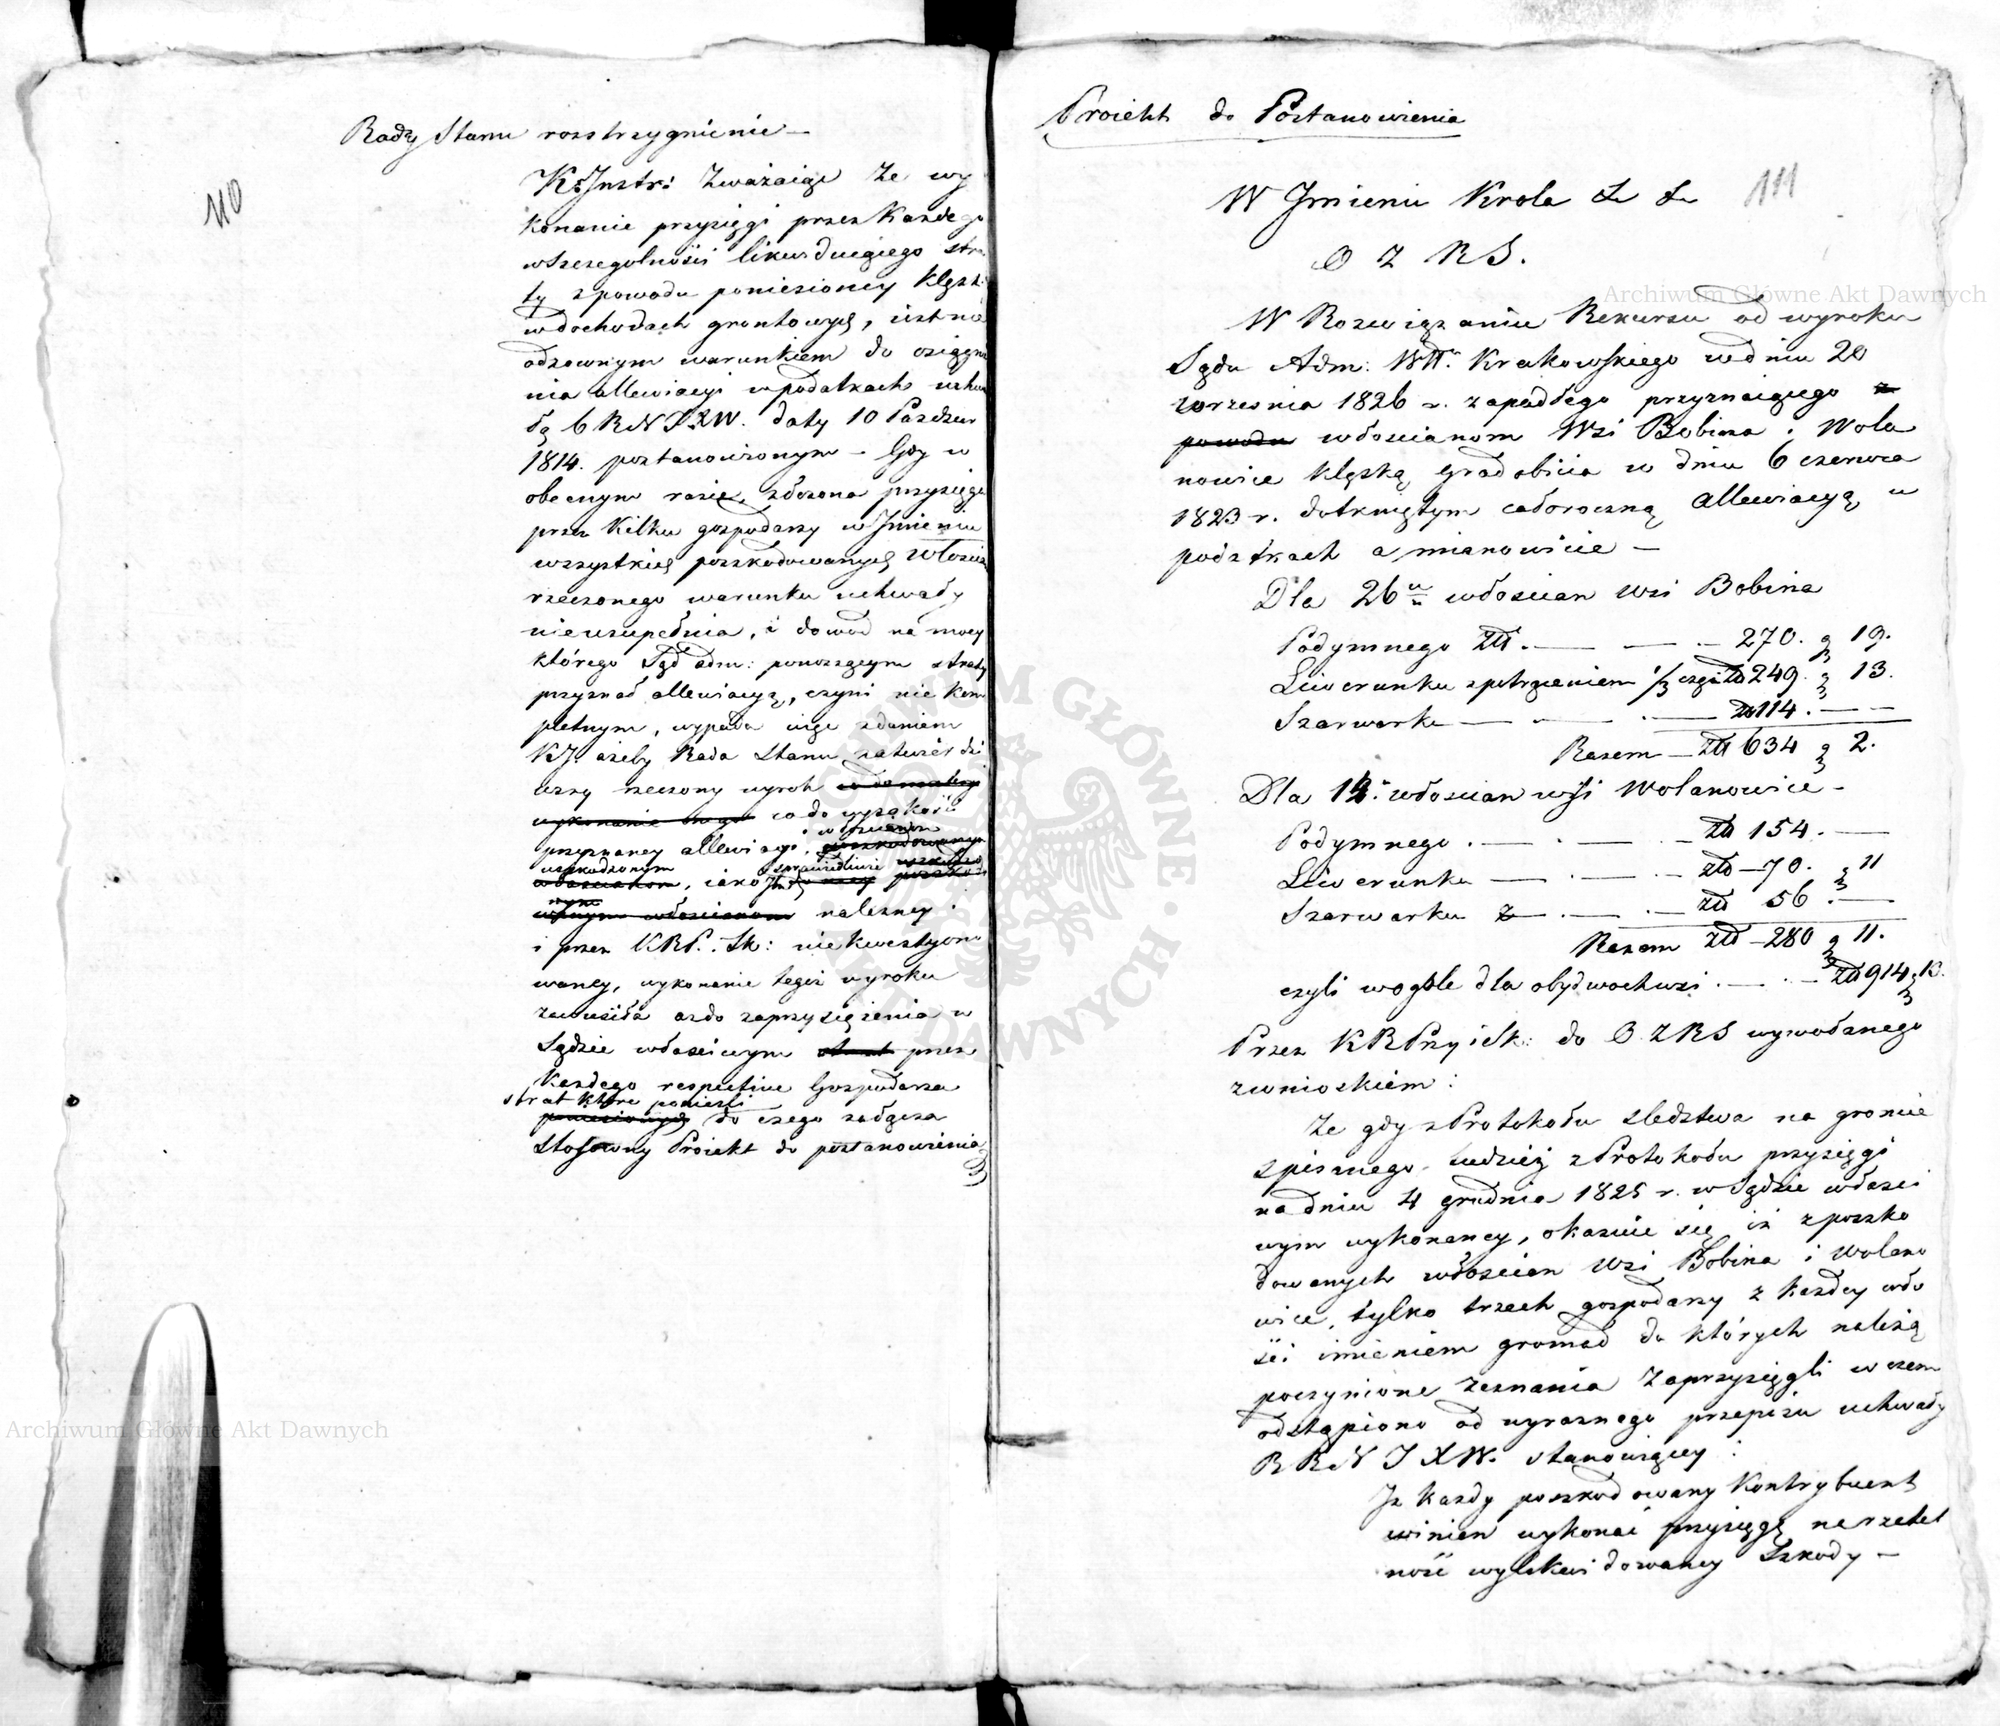 110
Rady Stanu rozstrzygnienie —
K: Instr: Zważaiąc że wy
konanie przysięgi przez Każdego
wszczegolności likwiduiącego stra
ty z powodu poniesioney Klęski
w dochodach grontowych, iest nie
odzownym warunkiem do osiągnie
nia allewiacyi w podatkach uchwa
łą b RNTXW. daty 10 Pazdzier
1814. postanowionym — Gdy w
obecnym razie, złożona przysięga
przez Kilku gospodarzy w Imieniu
wszystkich poszkodowanych Włościan
rzeczonego warunku uchwały
nieuzupełnia, i dowod na mocy
którego Sąd adm: ponoszącym straty
przyznał allewiacyą, czyni nie kom
pletnym, wypada więc zdaniem
KI. ażeby Rada Stanu zatwierdzi
wszy rzeczony wyrok co do
wykonanie co do wysokości
przyznaney allewiacyi, włościanom
uszkodzonym sprawiedliwie
włościanom, iako
włościanom należney:
i przez KRP. Sk: niekwestyono
waney, wykonanie tegoż wyroku
zawiesiła aż do zaprzysiężenia w
Sądzie właściwym przez
Każdego respective Gospodarza
strat które poniesli
poniesionych do czego załącza
Stosowny Proiekt do postanowienia
Archiwum Główne Akt Dawnych
Proiekt do Postanowienia
111
W Imieniu Krola & &
O Z RS.
Archiwum Główne Akt Dawnych
W Rozwiązaniu Rekursu od wyroku
Sądu Adm: Wtt. Krakowskiego w dniu 20
wrzesnia 1826 r. zapadłego przyznaiącego z
powodu włoscianom Wsi Bobina i Wola
nowice klęską gradobicia w dniu 6 czerwca
1823 r. dotkniętym całoroczną allewiacyą w
podatkach a mianowicie —
Dla 26 włoscian wsi Bobina
Podymnego Złł. — — — 270. g 19.
Liwerunku z potrąceniem 1/3 części Zł 249. g 13.
Szarwarku — — — zł 114. — —
Razem — Złł 634 g 2.
Dla 14: włoscian wsi Wolanowice —
Podymnego . — . — . — Złł 154. —
Liwerunku — . — . — złł — 70. g 11
Szarwarku — . — . — złł 56 . —
Razem złł — 280 g 11.
czyli wogóle dla obydwochwsi . — . — złł 914 g 13.
Przez KRPrzyiSk: do O. Z RS wywołanego
zwnioskiem:
Że gdy z Protokołu sledztwa na groncie
spisanego tudzież z Protokołu przysięgi
na dniu 4 grudnia 1825 r. w Sądzie właści
wym wykonaney, okazuie się iż z poszko
dowanych włoscian wsi Bobina i Wolano
wice, tylko trzech gospodarzy z każdey wło
sci imieniem gromad do których należą
poczynione zeznania zaprzysięgli w czem
odstąpiono od wyraznego przepisu uchwały
BRNTXW. stanowiącey:
Iż każdy poszkodowany Kontrybuent
winien wykonać przysięgę na rzetel
ność wylikwidowaney Szkody —
ARCHIWUM GŁÓWNE AKT DAWNYCH